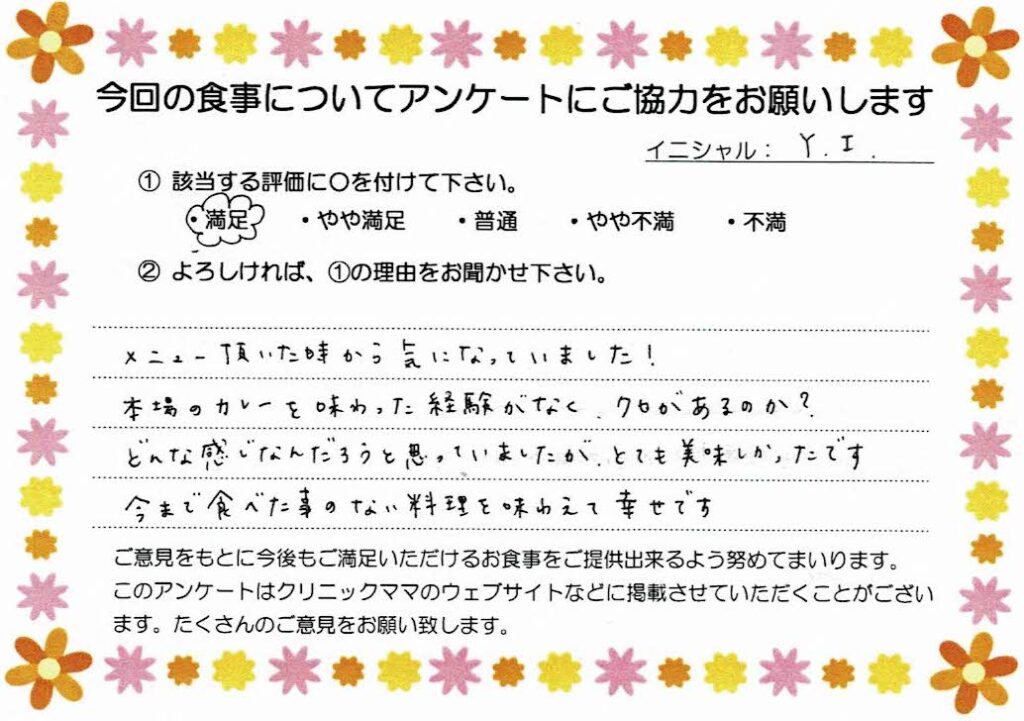 今回の食事についてアンケートにご協力をお願いします
イニシャル： Y.I.
① 該当する評価に〇を付けて下さい。
・満足 ・やや満足 ・普通 ・やや不満 ・不満
② よろしければ、①の理由をお聞かせ下さい。
メニュー頂いた時から気になっていました！
本場のカレーを味わった経験がなく、クセがあるのか？
どんな感じなんだろうと思っていましたが、とても美味しかったです
今まで食べた事のない料理を味わえて幸せです
ご意見をもとに今後もご満足いただけるお食事をご提供出来るよう努めてまいります。
このアンケートはクリニックママのウェブサイトなどに掲載させていただくことがござい
ます。たくさんのご意見をお願い致します。